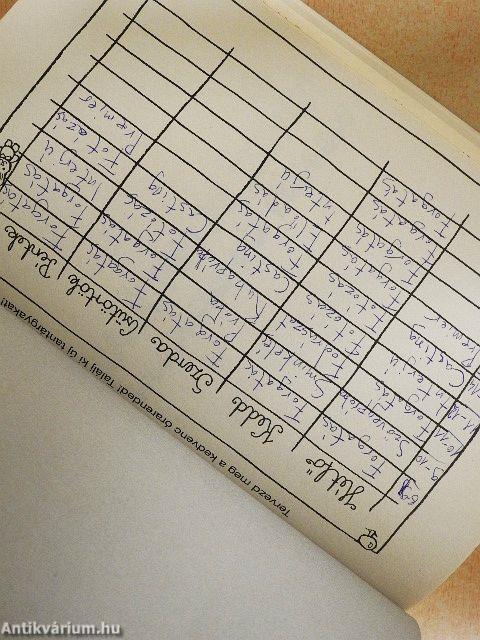 Tervezd meg a kedvenc órarended! Találj ki új tantárgyakat!
Hétfő Kedd Szerda Csütörtök Péntek
8-9 Forgatás Forgatás Forgatás Forgatás Forgatás
9-10 Próba Forgatás Forgatás
Forgatás Fodrászat Ruhapróba Fotózás Interjú
Interjú Fotózás Casting Casting Fotózás
Casting Fotózás Forgatás Premier
Premier Forgatás Előadás
Forgatás Interjú
Forgatás
Antikvárium.hu